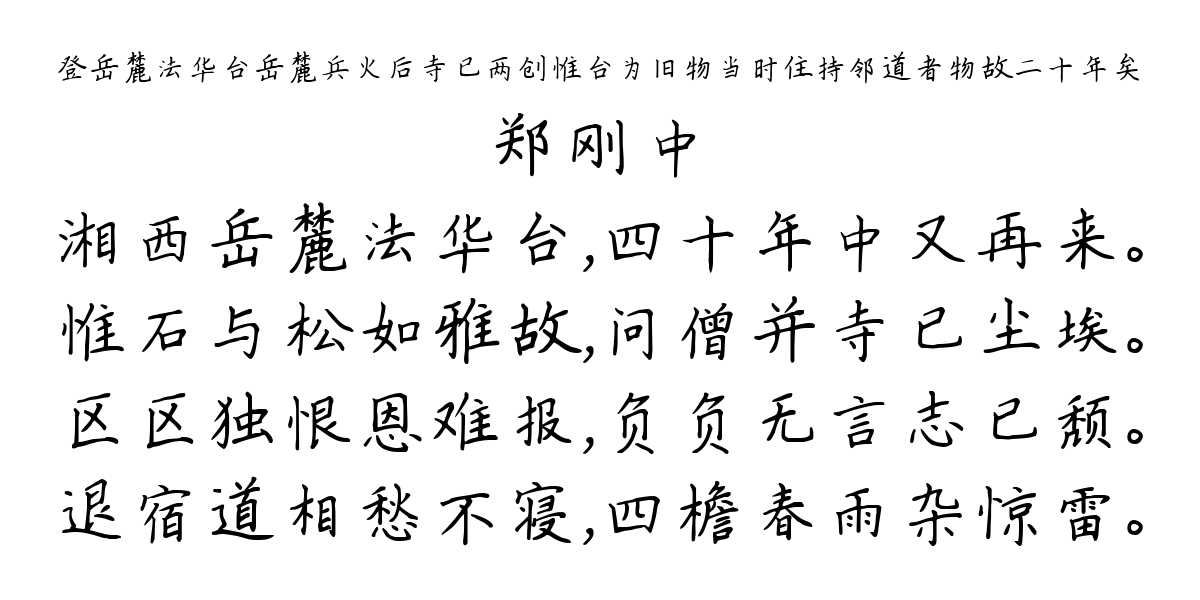 登岳麓法华台岳麓兵火后寺已两创惟台为旧物当时住持邻道者物故二十年矣
郑刚中
湘西岳麓法华台,四十年中又再来。
惟石与松如雅故,问僧并寺已尘埃。
区区独恨恩难报,负负无言志已颓。
退宿道相愁不寝,四檐春雨杂惊雷。